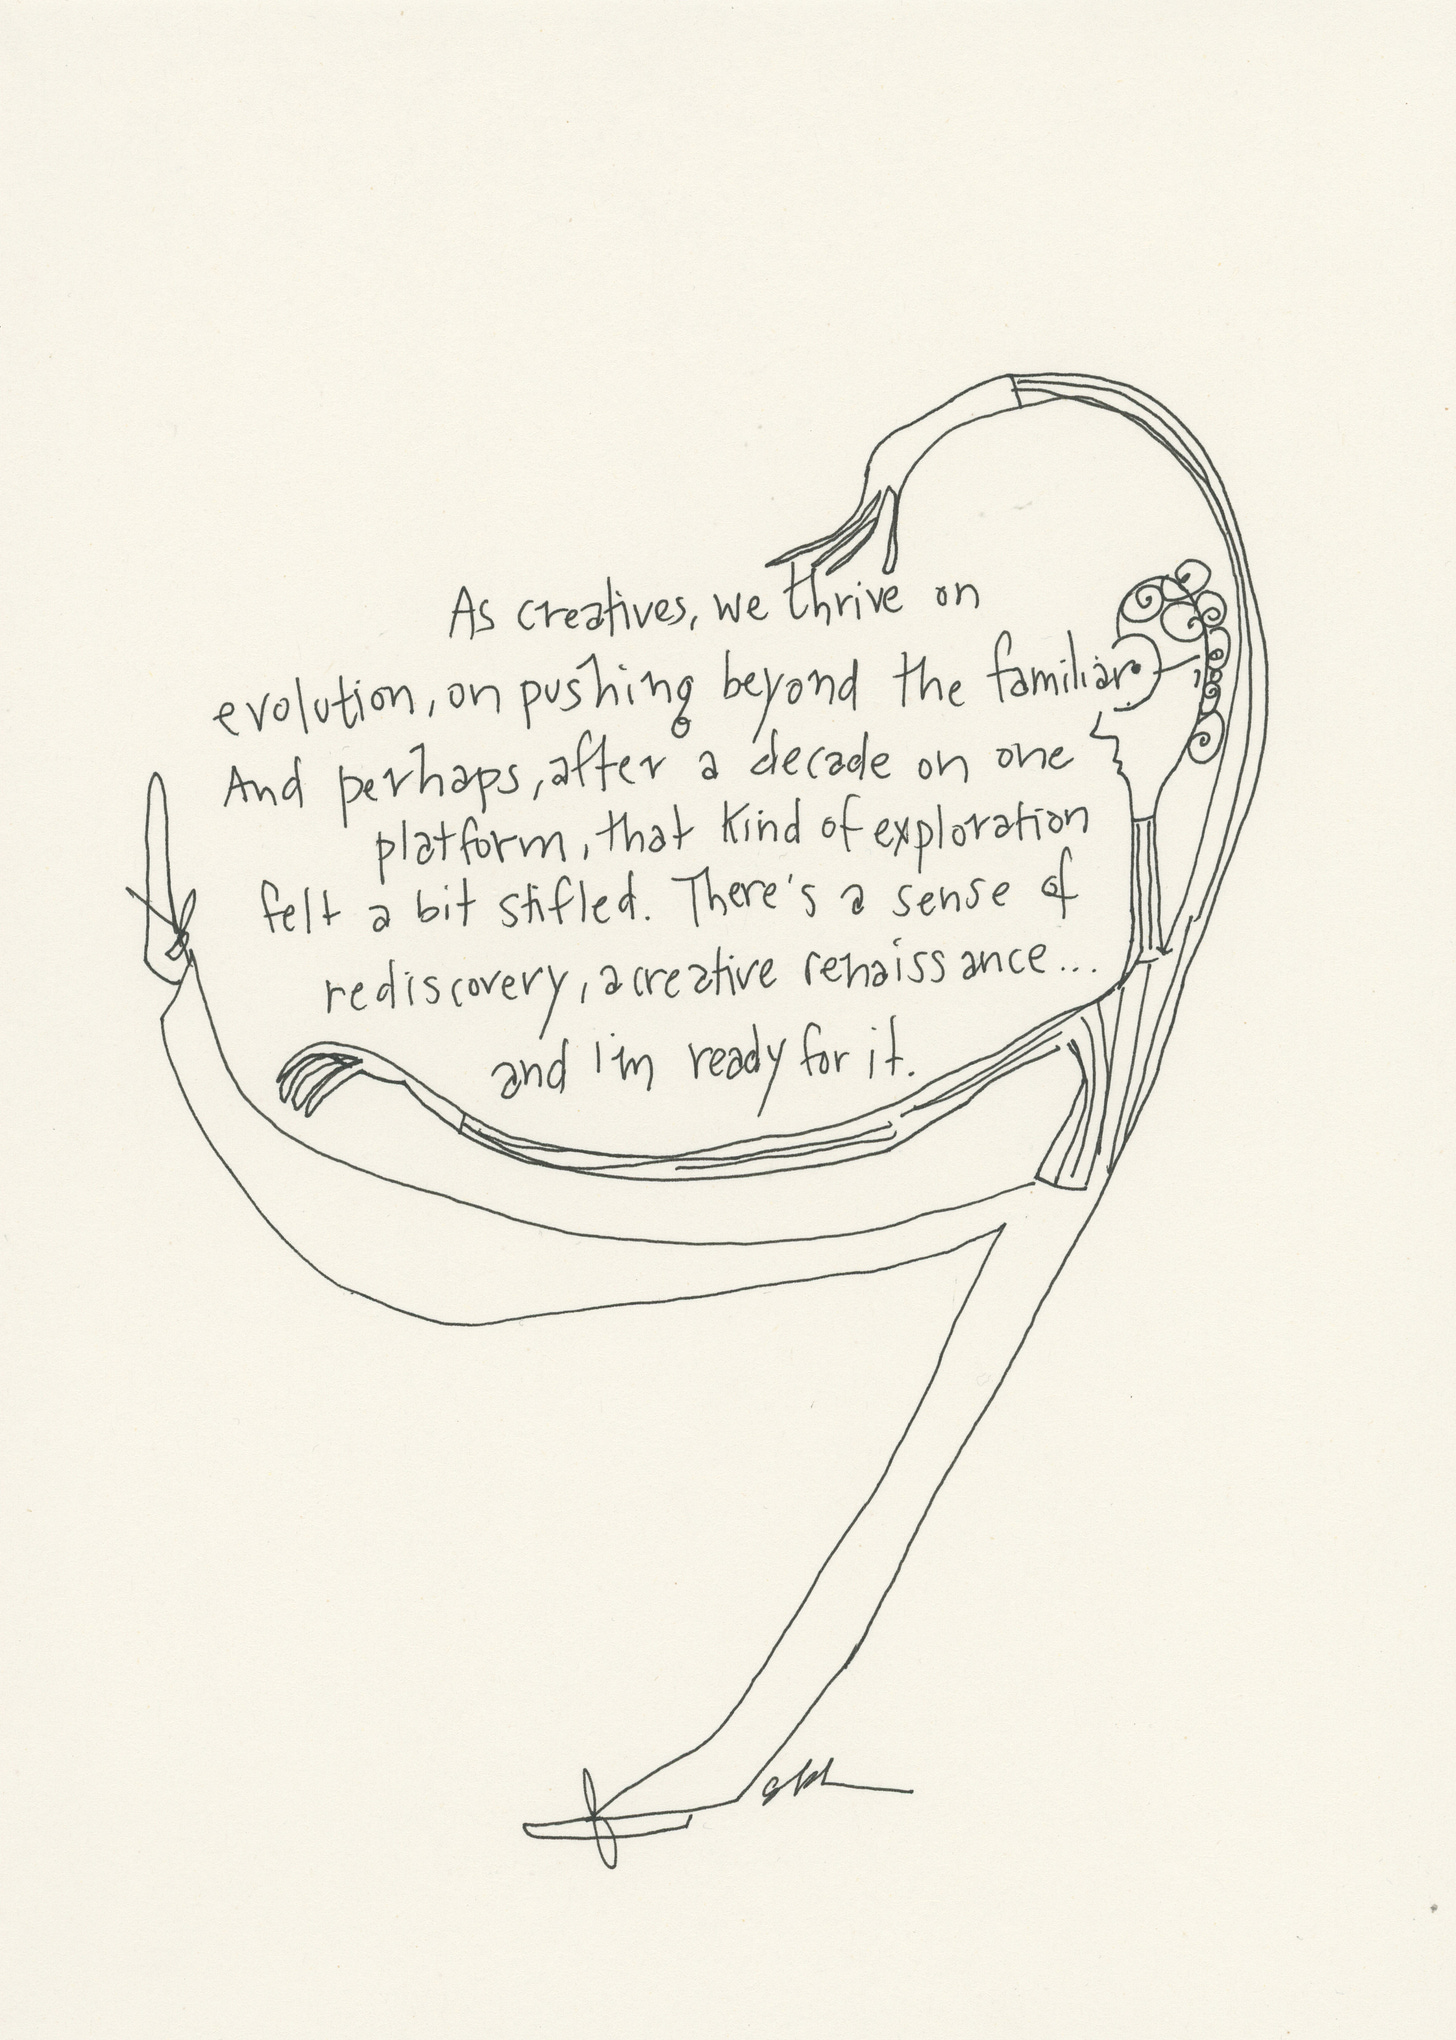 As creatives, we thrive on
evolution, on pushing beyond the familiar
And perhaps, after a decade on one
platform, that kind of exploration
felt a bit stifled. There's a sense of
rediscovery, a creative renaissance...
and I'm ready for it.